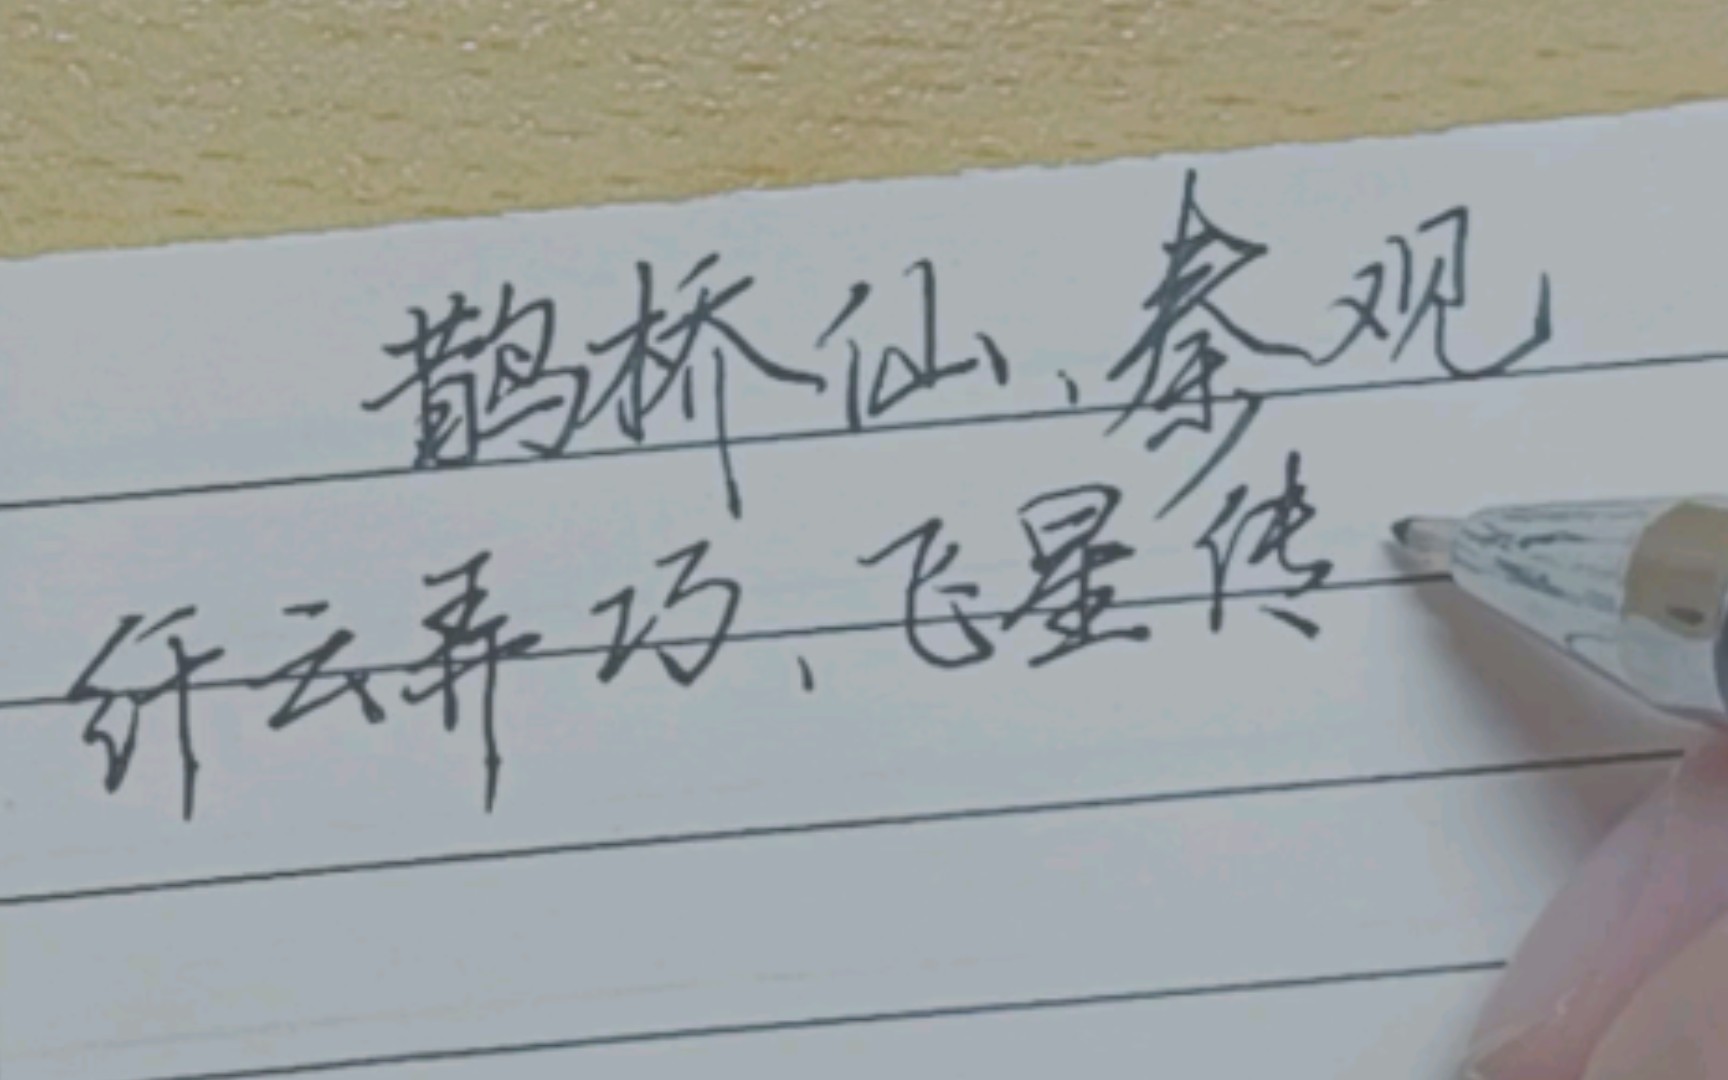 鹊桥仙、秦观
纤云弄巧、飞星传